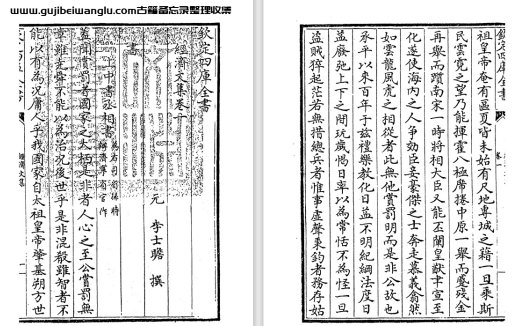 www.gujibeiwanglu.com古籍备忘录整理收集
欽定四庫全書
經濟文集卷一
元 李士瞻 撰
書
上中書丞相書
蓋聞賞罰者國家之大柄是非者人心之至公賞罰無
章雖堯舜不能以為治況後世乎是非混殽雖智者不
能以有為況庸人乎我國家自太祖皇帝肇基朔方世
經濟文集
欽定四庫全書
卷一
祖皇帝奄有區夏皆未始有尺地專城之籍一旦乘斯
民雲霓之望乃能揮霍八極席捲中原一舉而蹙殘金
再舉而躪南宋一時將相大臣又能丕闡皇猷聿宣至
化遂使海內之人爭効臣妾豪傑之士奔走慕義翕然
如雲龍風虎之相從者此無他賞罰明而是非公故也
承平以來百年于兹禮樂教化日益不明紀綱法度日
益廢弛上下之間玩歲愒日率以為常恬不為怪一旦
盜賊猝起茫若無措總兵者惟事虛聲秉鈞者務存姑